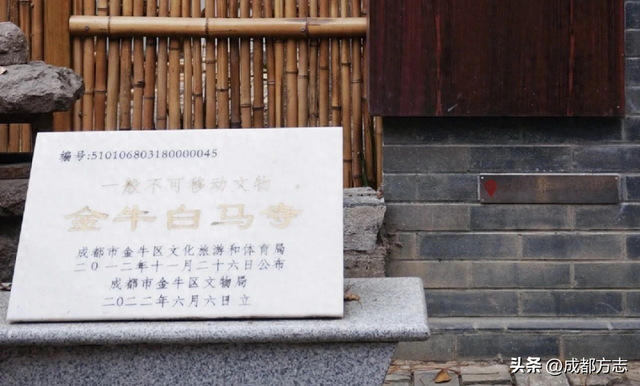 编号:510106803180000045
一般不可移动文物
金牛白马寺
成都市金牛区文化旅游和体育局
二〇一二年十一月二十六日公布
成都市金牛区文物局
二〇二二年六月六日立
头条@成都方志